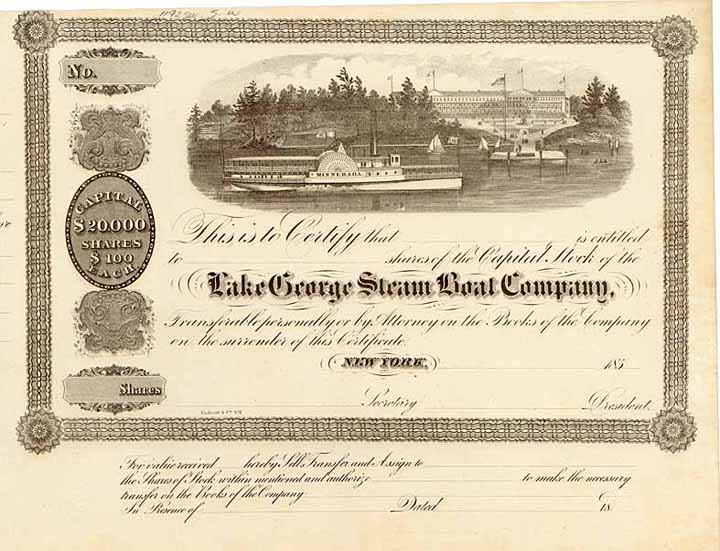 No.
MINNEHAHA.
CAPITAL
$20.000
SHARES
$100
EACH
This is to Certify that is entitled
to shares of the Capital Stock of the
Lake George Steam Boat Company,
Transferable personally or by Attorney on the Books of the Company
on the surrender of this Certificate.
NEW YORK, 185
Shares
Secretary President.
For value received hereby Sell, Transfer and Assign to
the Shares of Stock within mentioned and authorize to make the necessary
transfer on the Books of the Company
In Presence of Dated 18